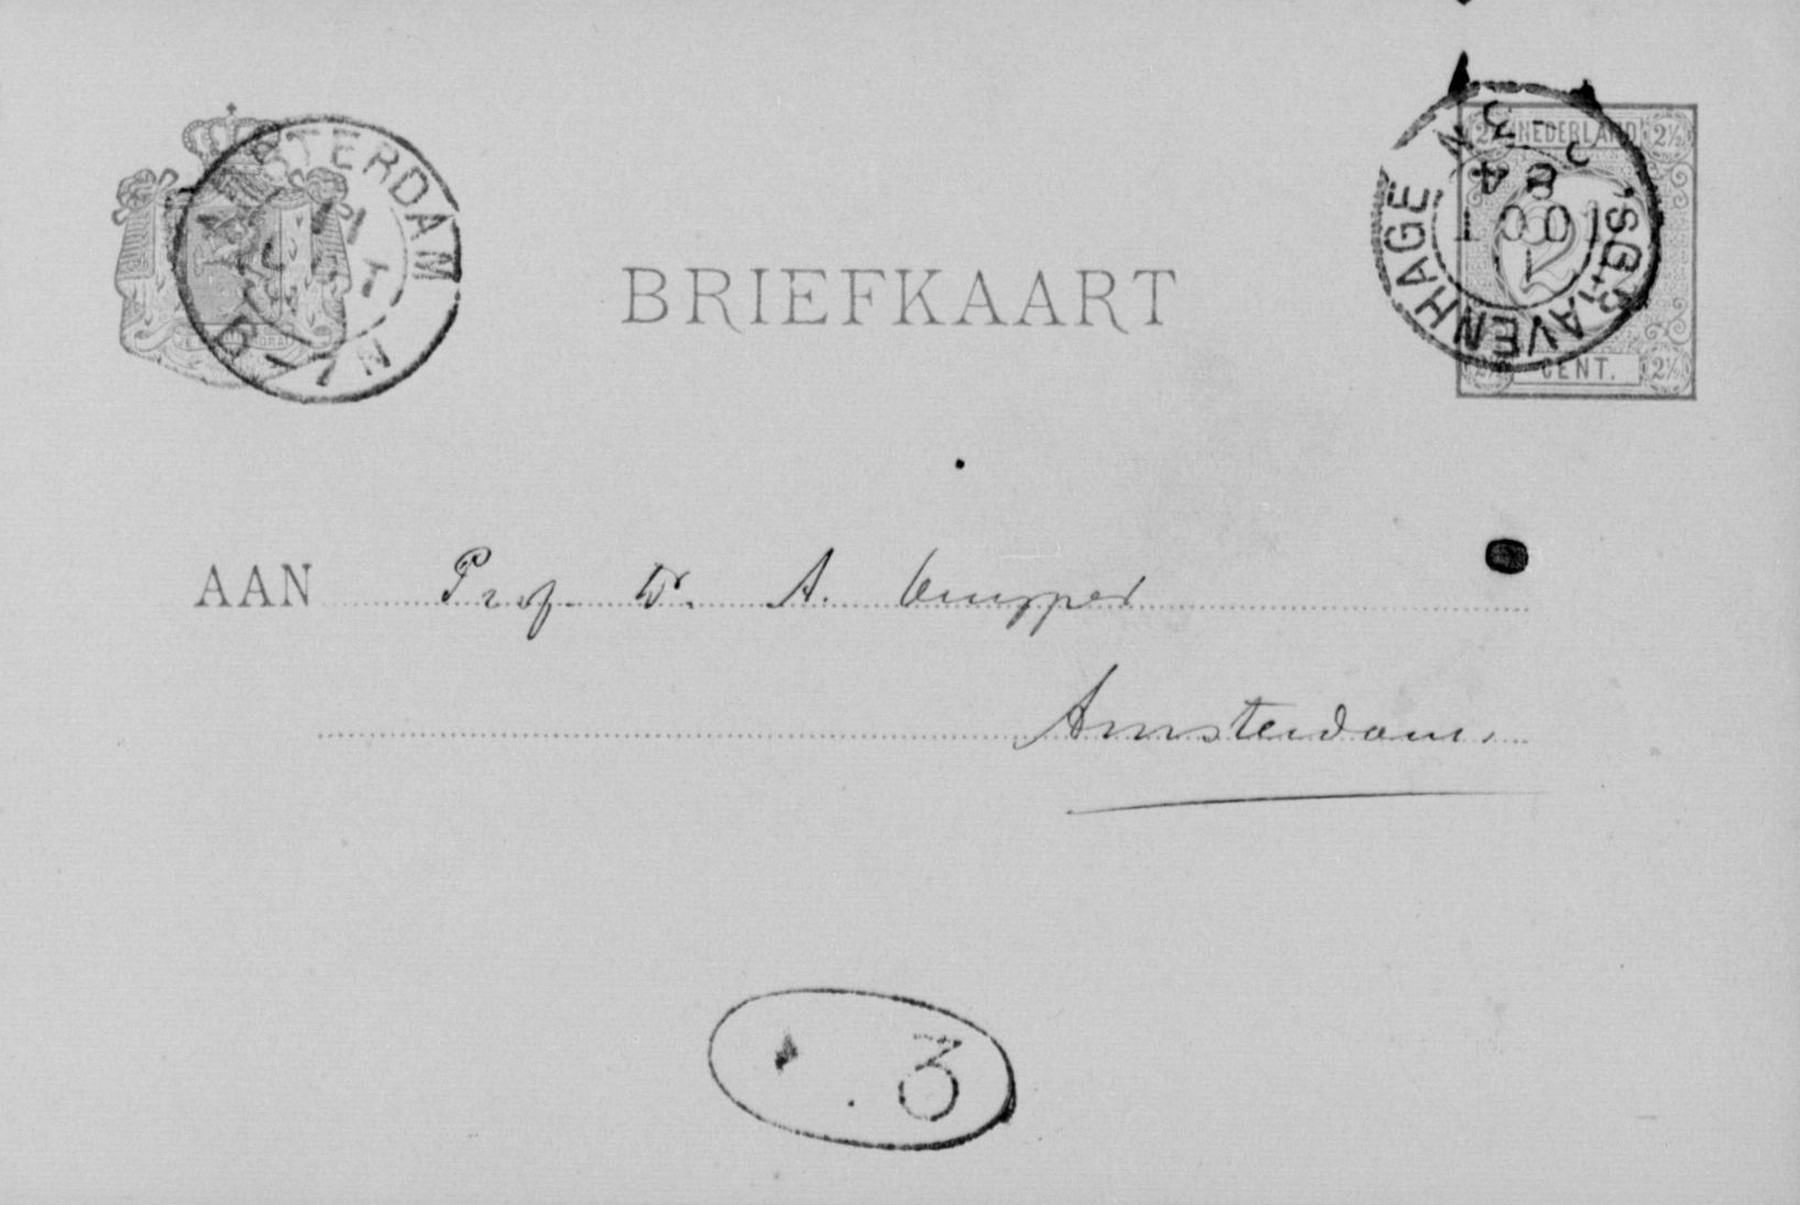 AMSTERDAM
NEDERLAND
2½ 2½
'S GRAVENHAGE
CENT.
2½
BRIEFKAART
AAN Prof. Dr. A. Kuyper
Amsterdam.